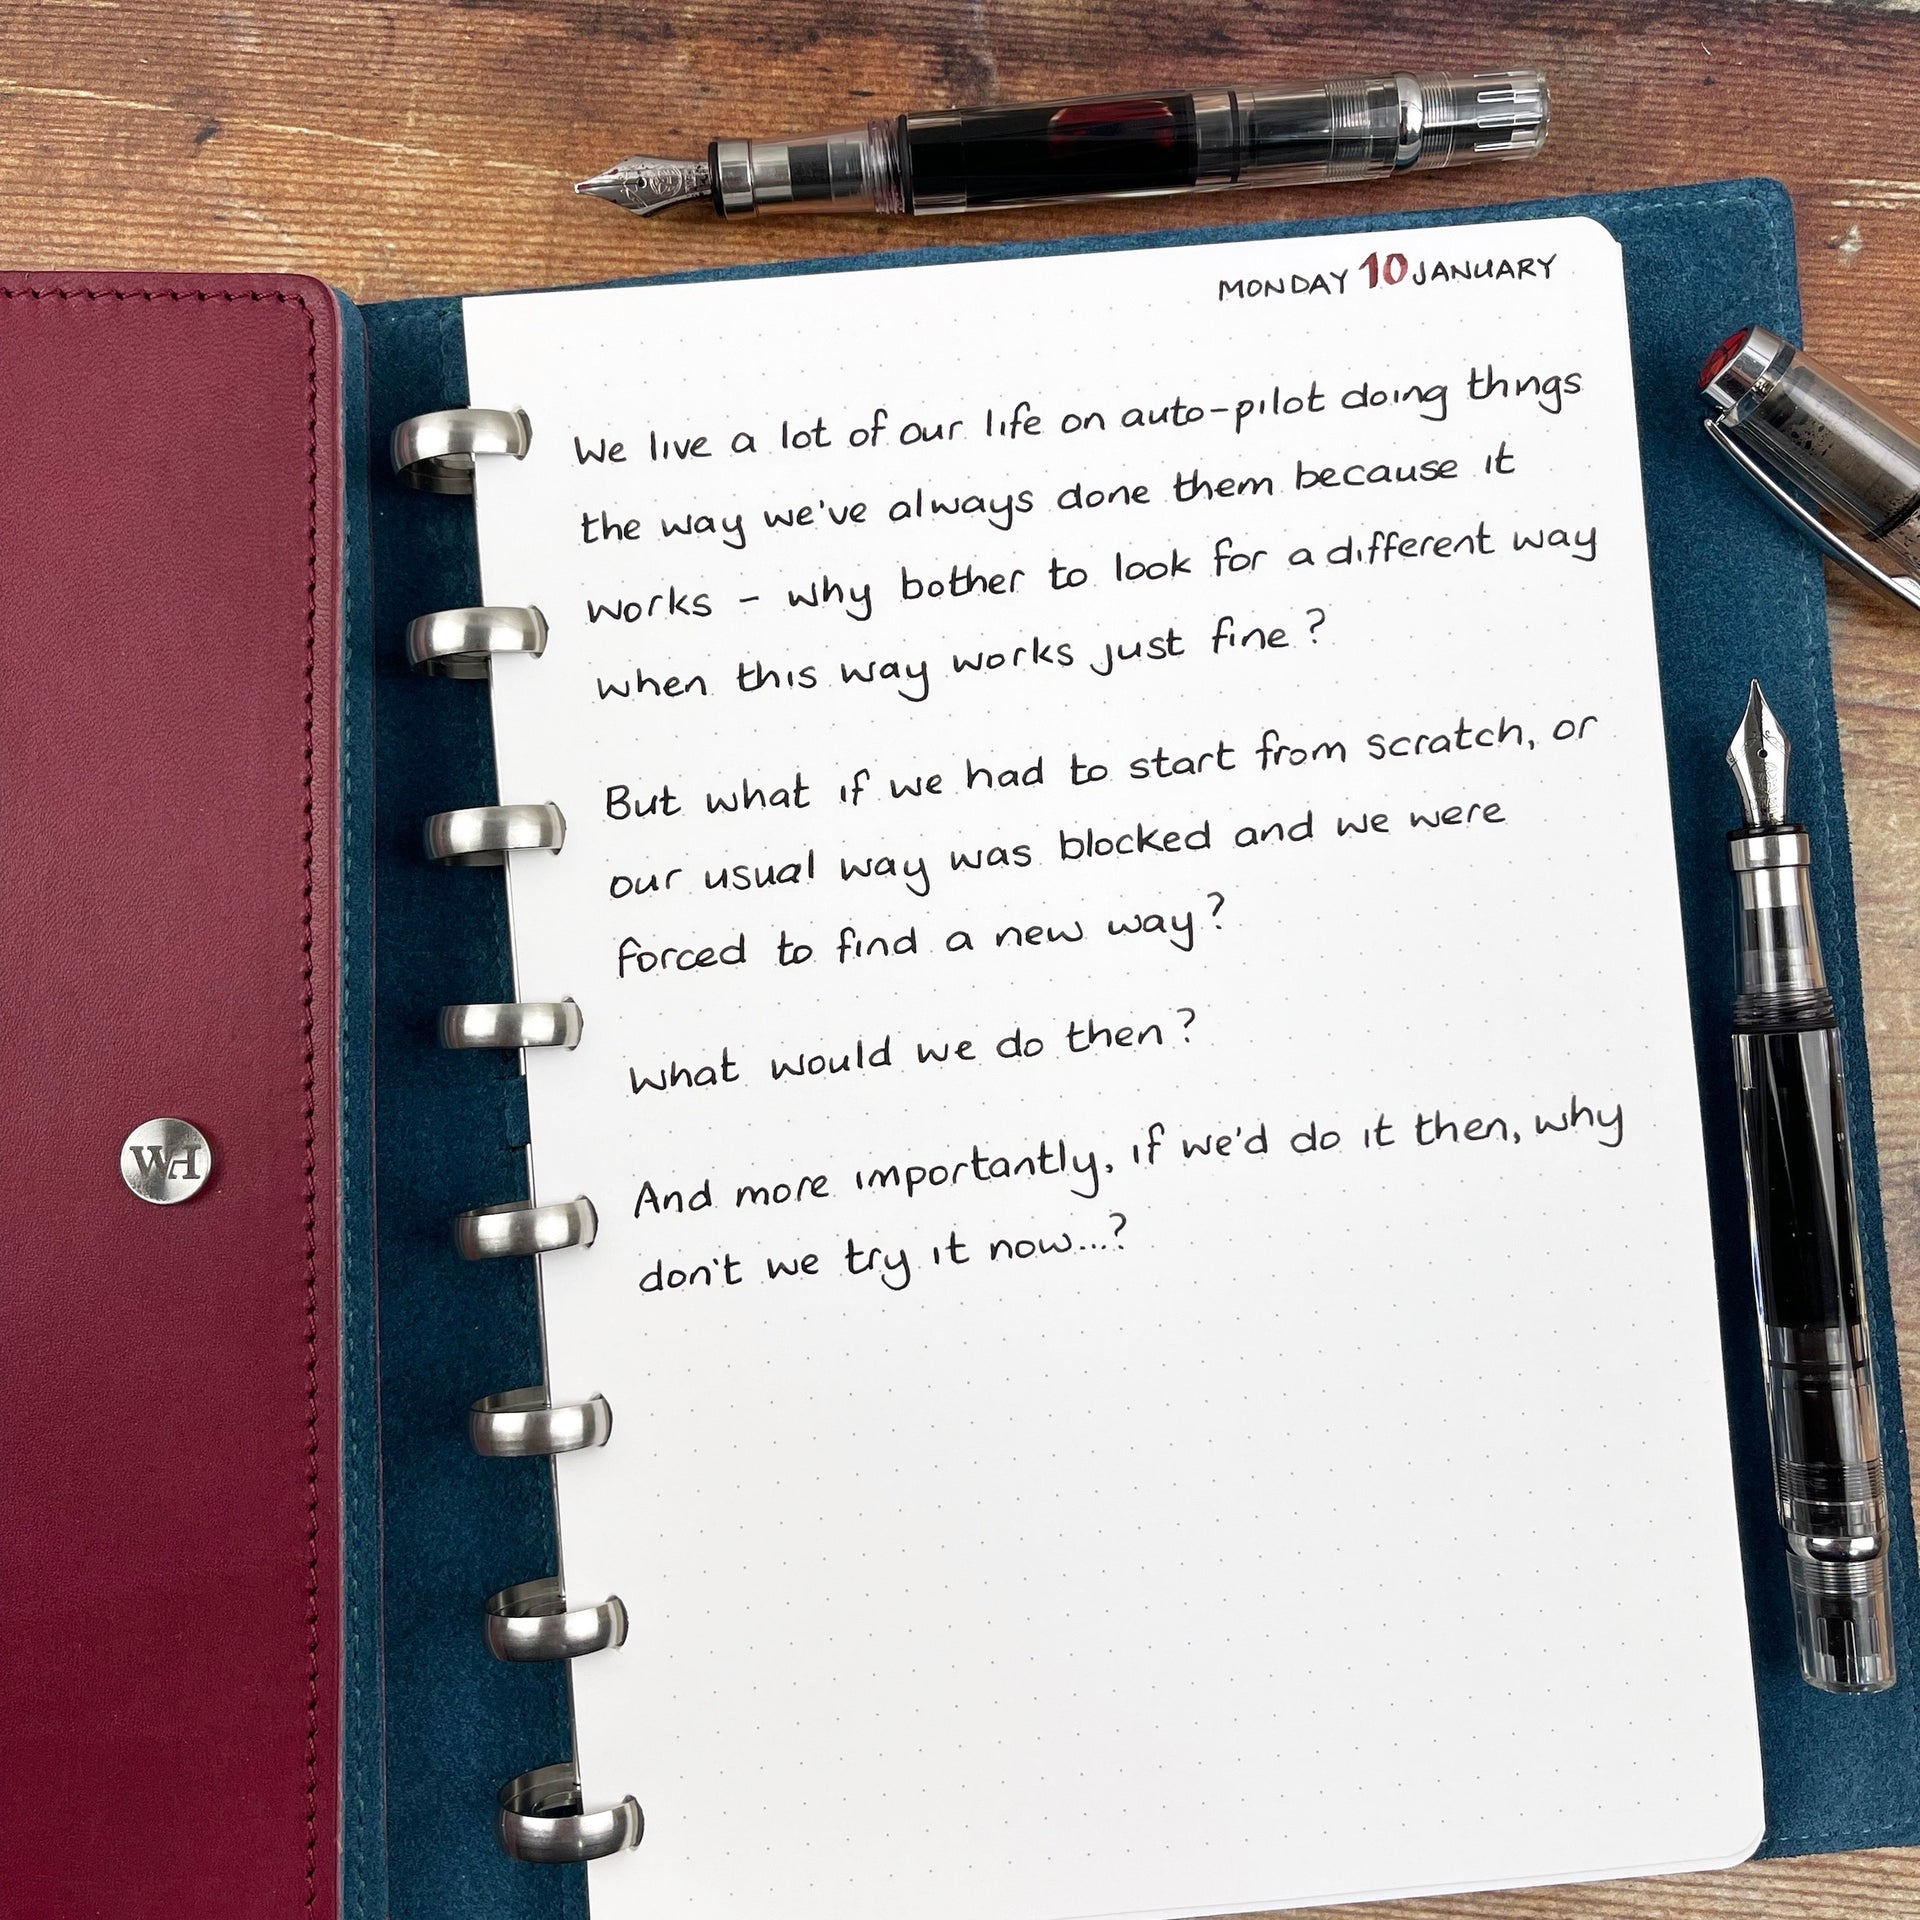 MONDAY 10 JANUARY
We live a lot of our life on auto-pilot doing things
the way we've always done them because it
works - why bother to look for a different way
when this way works just fine?
But what if we had to start from scratch, or
our usual way was blocked and we were
forced to find a new way?
What would we do then?
And more importantly, if we'd do it then, why
don't we try it now...?
WH